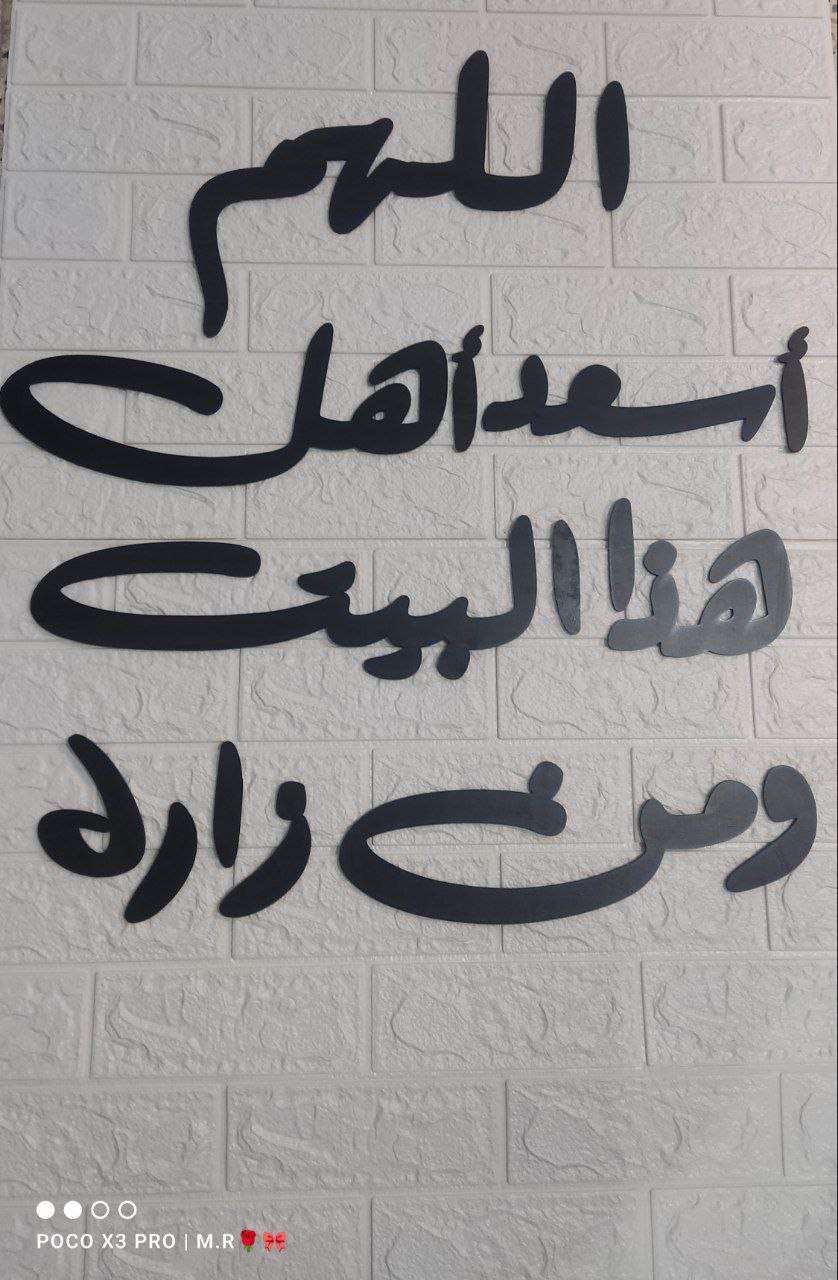 اللهم
أسعد أهل
هذا البيت
ومن زاره
POCO X3 PRO | M.R🌹🎀